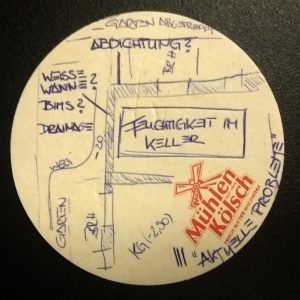 GARTEN
ABDICHTUNG?
BRH
WEISSE
WANNE?
BIMS?
DRAINAGE
-20
FEUCHTIGKEIT IM
KELLER
WEG
GARTEN
BRH
KG (-2,50)
Mühlen
Kölsch
III "AKTUELLE PROBLEME"